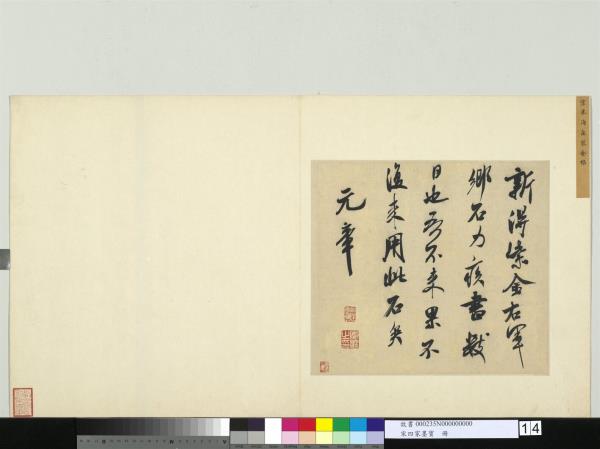 新得紫金右軍
鄉石力疾書數
日也吾不來果不
復來用此石矣
元章
故書 000235N000000000
宋四家墨寶 冊
14